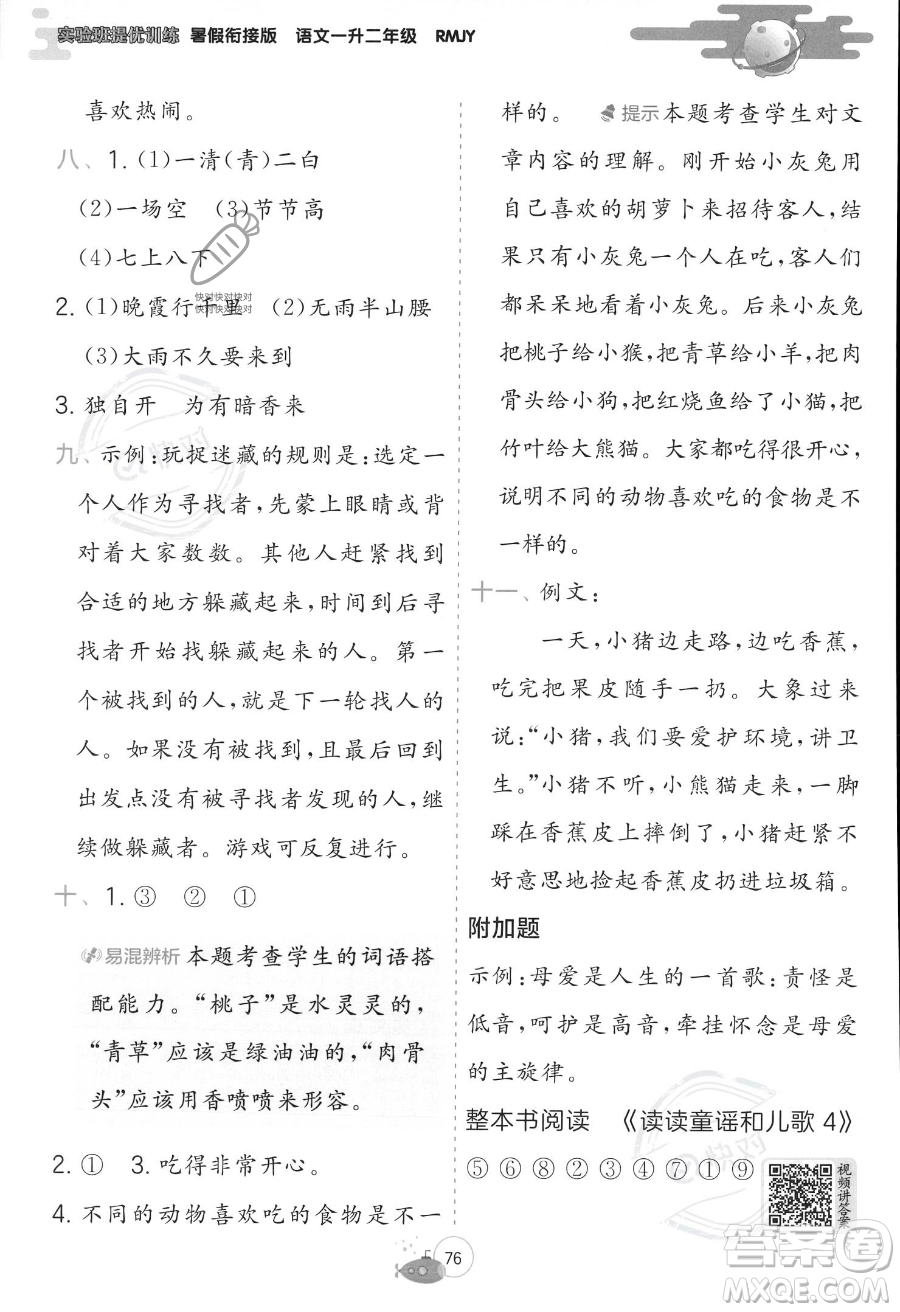 实验班提优训练 暑假衔接版 语文一升二年级 RMJY
喜欢热闹。
八、1.(1)一清(青)二白
(2)一场空 (3)节节高
(4)七上八下
快对快对快对
快对快对快对
2.(1)晚霞行千里 (2)无雨半山腰
(3)大雨不久要来到
3. 独自开 为有暗香来
九、示例:玩捉迷藏的规则是:选定一
个人作为寻找者,先蒙上眼睛或背
对着大家数数。其他人赶紧找到
合适的地方躲藏起来,时间到后寻
找者开始寻找躲藏起来的人。第一
个被找到的人,就是下一轮找人的
人。如果没有被找到,且又回到
出发点没有被寻找者发现的人,继
续做躲藏者。游戏可反复进行。
十、1.③ ② ①
易混辨析 本题考查学生的词语搭
配能力。“桃子”是水灵灵的,
“青草”应该是绿油油的,“肉骨
头”应该用香喷喷来形容。
2. ① 3. 吃得非常开心。
4. 不同的动物喜欢吃的食物是不一
样的。 提示 本题考查学生对文
章内容的理解。刚开始小灰兔用
自己喜欢的胡萝卜来招待客人,结
果只有小灰兔一个人在吃,客人们
都呆呆地看着小灰兔。后来小灰兔
把桃子给小猴,把青草给小羊,把肉
骨头给小狗,把红烧鱼给小猫,把
竹叶给大熊猫。大家都吃得很开心,
说明不同的动物喜欢吃的食物是不
一样的。
十一、例文:
一天,小猪边走路,边吃香蕉,
吃完把果皮随手一扔。大象过来
说:“小猪,我们要爱护环境,讲卫
生。”小猪不听,小熊猫走来,一脚
踩在香蕉皮上摔倒了,小猪赶紧不
好意思地捡起香蕉皮扔进垃圾箱。
附加题
示例:母爱是人生的一首歌:责怪是
低音,呵护是高音,牵挂怀念是母爱
的主旋律。
整本书阅读 《读读童谣和儿歌 4》
⑤ ⑥ ⑧ ② ③ ④ ⑦ ① ⑨
视频讲答案
76
快对
快对
答案圈
MXQE.COM